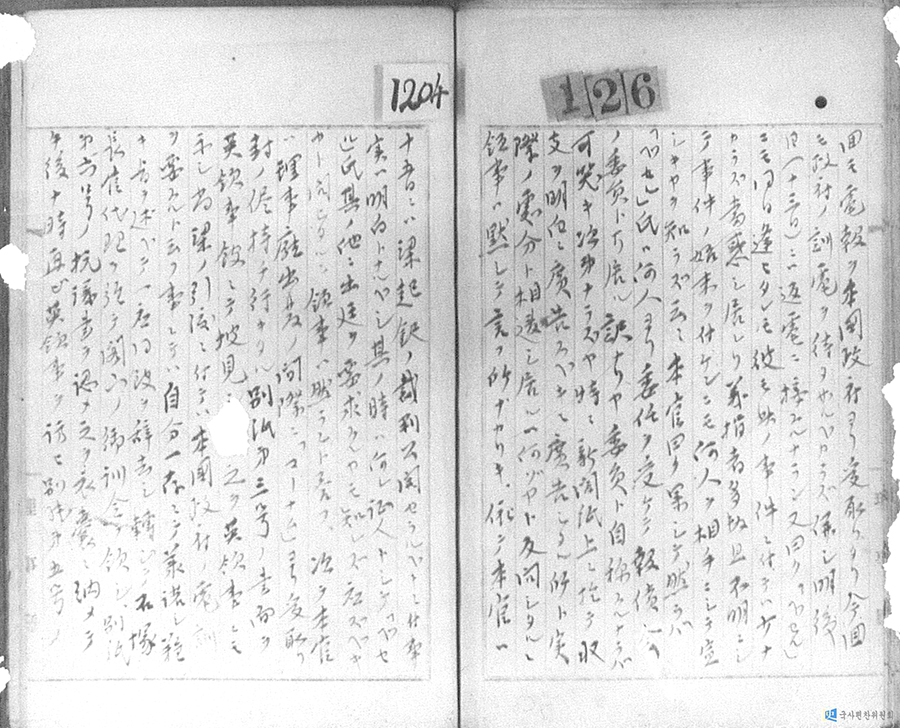 126
回モ電報ヲ本國政府ヨリ受取タリ今回
モ政府ノ訓電ヲ待タザルベカラズ係シ明後
日(十三日)ニハ返電ニ接スルナラン又曰ク「ベセル」
ニモ同日逢ヒタレモ彼モ此ノ事件ニ付テハ少ナ
カラズ当惑シ居レリ義捐者多数且不明ニシ
テ事件ノ始末ヲ付ケンニモ何人ヲ相手ニシテ宜
シキヤヲ知ラズ云々本官曰ク果シテ然ラバ
「ベセル」氏ハ何人ヨリ委任ヲ受ケテ報償
ノ委員ト成居ル訳ナリヤ委員ト自称スルナラバ
可笑キ次第ナラズヤ時ニ新聞紙上ニ於テ収
支ヲ明白ニ廣告スベキニ廣告シタル所ト実
際ノ處分ト相違シ居ルハ何ゾヤト反問シタルニ
領事ハ黙シテ言フ所ナカリキ、依テ本官ハ
1204
十五日ニハ梁起鐸ノ裁判公開セラルベキニ付事
実ハ明白トナルベシ其ノ時ハ何レ証人トシテ「ベセ
ル」氏其ノ他ニ出廷ヲ要求スルヤモ知レズ応ズベキ
ヤト云ヒタルニ領事ハ然ラント言フ、次テ本官
ハ理事廳出発ノ間際ニ「コーナム」ヨリ受取リ
封ノ儘持チ行キタル別紙第三号ノ書面ヲ
英領事館ニテ披見シ之ヲ英領事ニモ
示シ尚梁ノ引渡ニ付テハ本國政府ノ電訓
ヲ要スルト云フ事ニテハ自分一存ニテ承諾シ難
キ旨ヲ述ベテ一応同設ヲ辞去シ轉ジテ石塚
長官代理ヲ訪テ閣下ノ御訓令ヲ領シ、別紙
第六号ノ抗議書ヲ認メ之ヲ衣嚢ニ納メテ
午後十時再ビ英領事ヲ訪ヒ別紙第五号ノ
국사편찬위원회